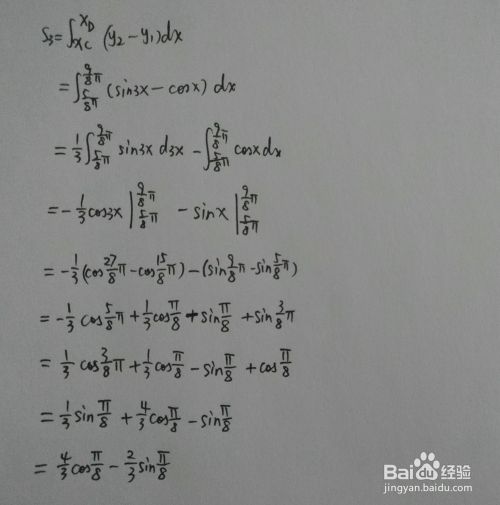 S₃=∫_{x_C}^{x_D} (y₂-y₁)dx
=∫_{5/8 π}^{9/8 π} (sin3x-cosx) dx
=1/3 ∫_{5/8 π}^{9/8 π} sin3x d3x -∫_{5/8 π}^{9/8 π} cosxdx
=-1/3 cos3x |_{5/8 π}^{9/8 π} -sinx |_{5/8 π}^{9/8 π}
=-1/3 (cos 27/8 π-cos 15/8 π)-(sin 9/8 π-sin 5/8 π)
=-1/3 cos 5/8 π+1/3 cos π/8 +sin π/8 +sin 3/8 π
=1/3 cos 3/8 π+1/3 cos π/8 -sin π/8 +cos π/8
=1/3 sin π/8 +4/3 cos π/8 -sin π/8
=4/3 cos π/8 -2/3 sin π/8
Baidu经验
jingyan.baidu.com